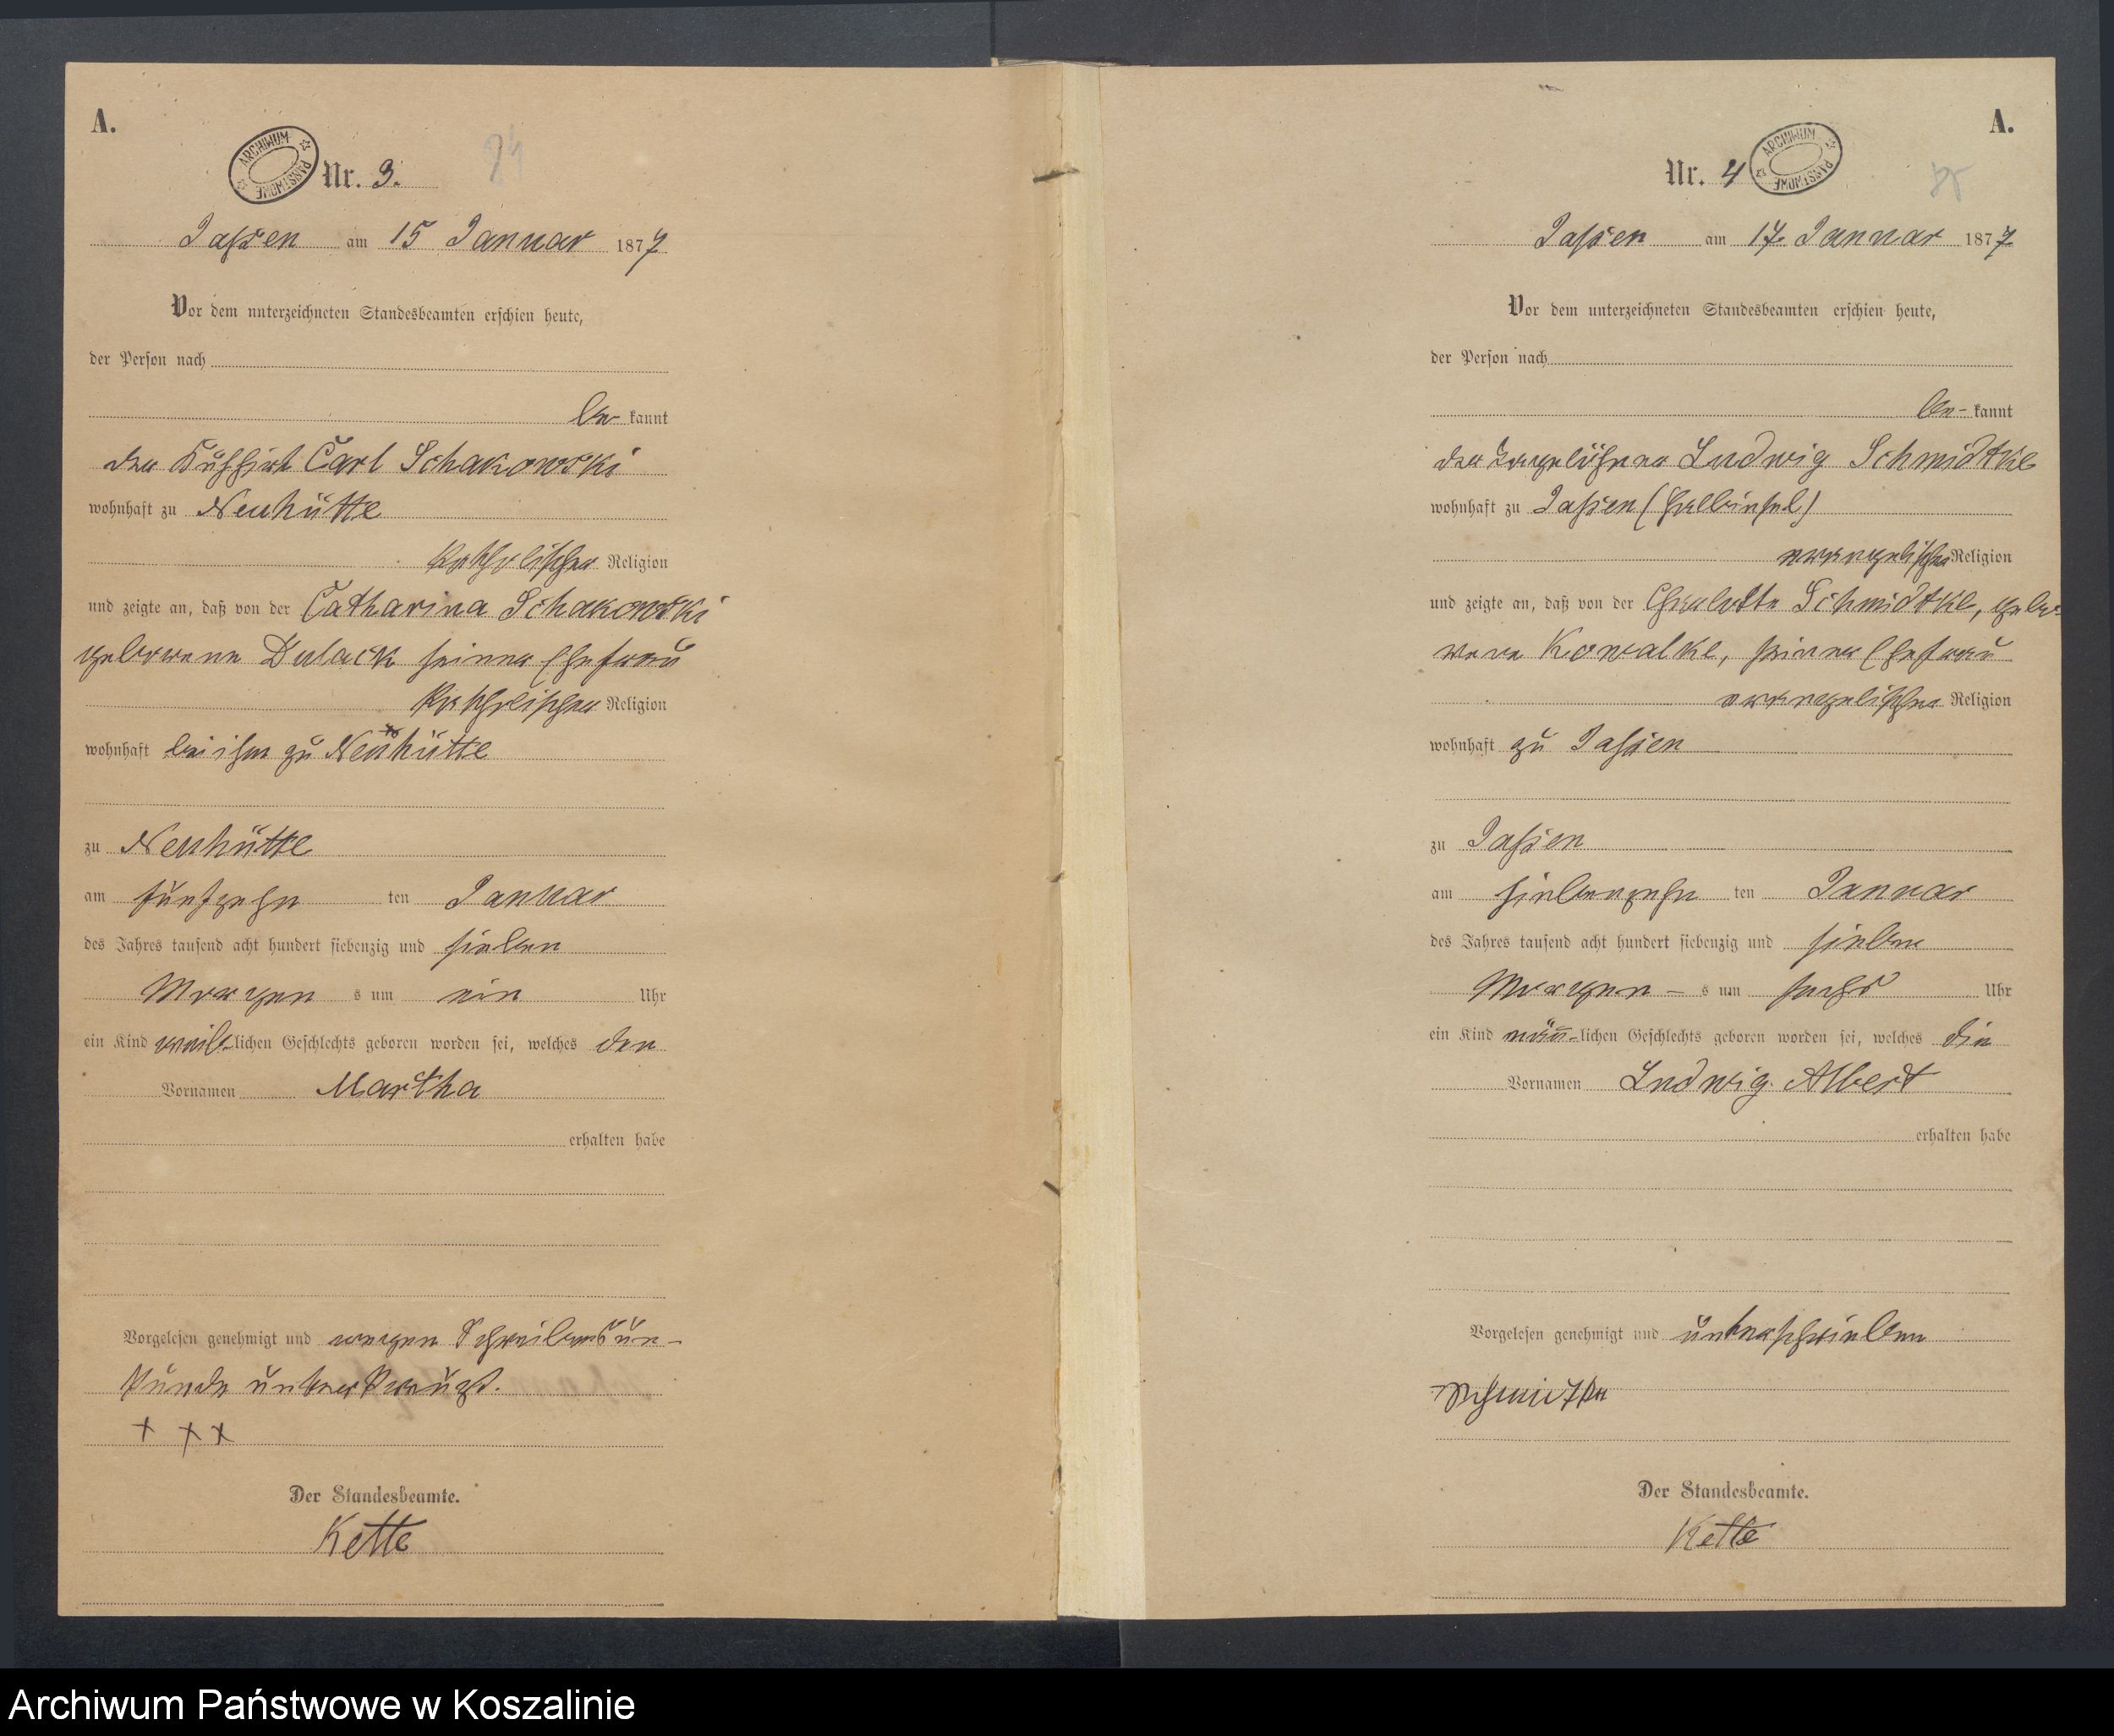 A.
ARCHIWUM PAŃSTWOWE
Nr. 3.
84
Jassen am 15 Januar 1877
Vor dem unterzeichneten Standesbeamten erschien heute,
der Person nach
be- kannt
der Kuhhirt Carl Schakowski
wohnhaft zu Neuhütte
katholischer Religion
und zeigte an, daß von der Catharina Schakowski
geborene Dulack seiner Ehefrau
katholischer Religion
wohnhaft bei ihm zu Neuhütte
zu Neuhütte
am fünfzehn ten Januar
des Jahres tausend acht hundert siebenzig und sieben
Morgen s um ein Uhr
ein Kind weib-lichen Geschlechts geboren worden sei, welches den
Vornamen Martha
erhalten habe
Vorgelesen genehmigt und wegen Schreibensun-
kunde unterkreuzt.
+ + +
Der Standesbeamte.
Kette
A.
Nr. 4
ARCHIWUM PAŃSTWOWE
85
Jassen am 17. Januar 1877
Vor dem unterzeichneten Standesbeamten erschien heute,
der Person nach
be- kannt
der Tagelöhner Ludwig Schmidtke
wohnhaft zu Jassen (Halbinsel)
evangelischer Religion
und zeigte an, daß von der Charlotte Schmidtke, gebo-
rene Kowalke, seiner Ehefrau
evangelischer Religion
wohnhaft zu Jassen
zu Jassen
am siebenzehn ten Januar
des Jahres tausend acht hundert siebenzig und sieben
Morgen - s um sechs Uhr
ein Kind män̅-lichen Geschlechts geboren worden sei, welches die
Vornamen Ludwig Albert
erhalten habe
Vorgelesen genehmigt und unterschrieben
Schmitke
Der Standesbeamte.
Kette
Archiwum Państwowe w Koszalinie